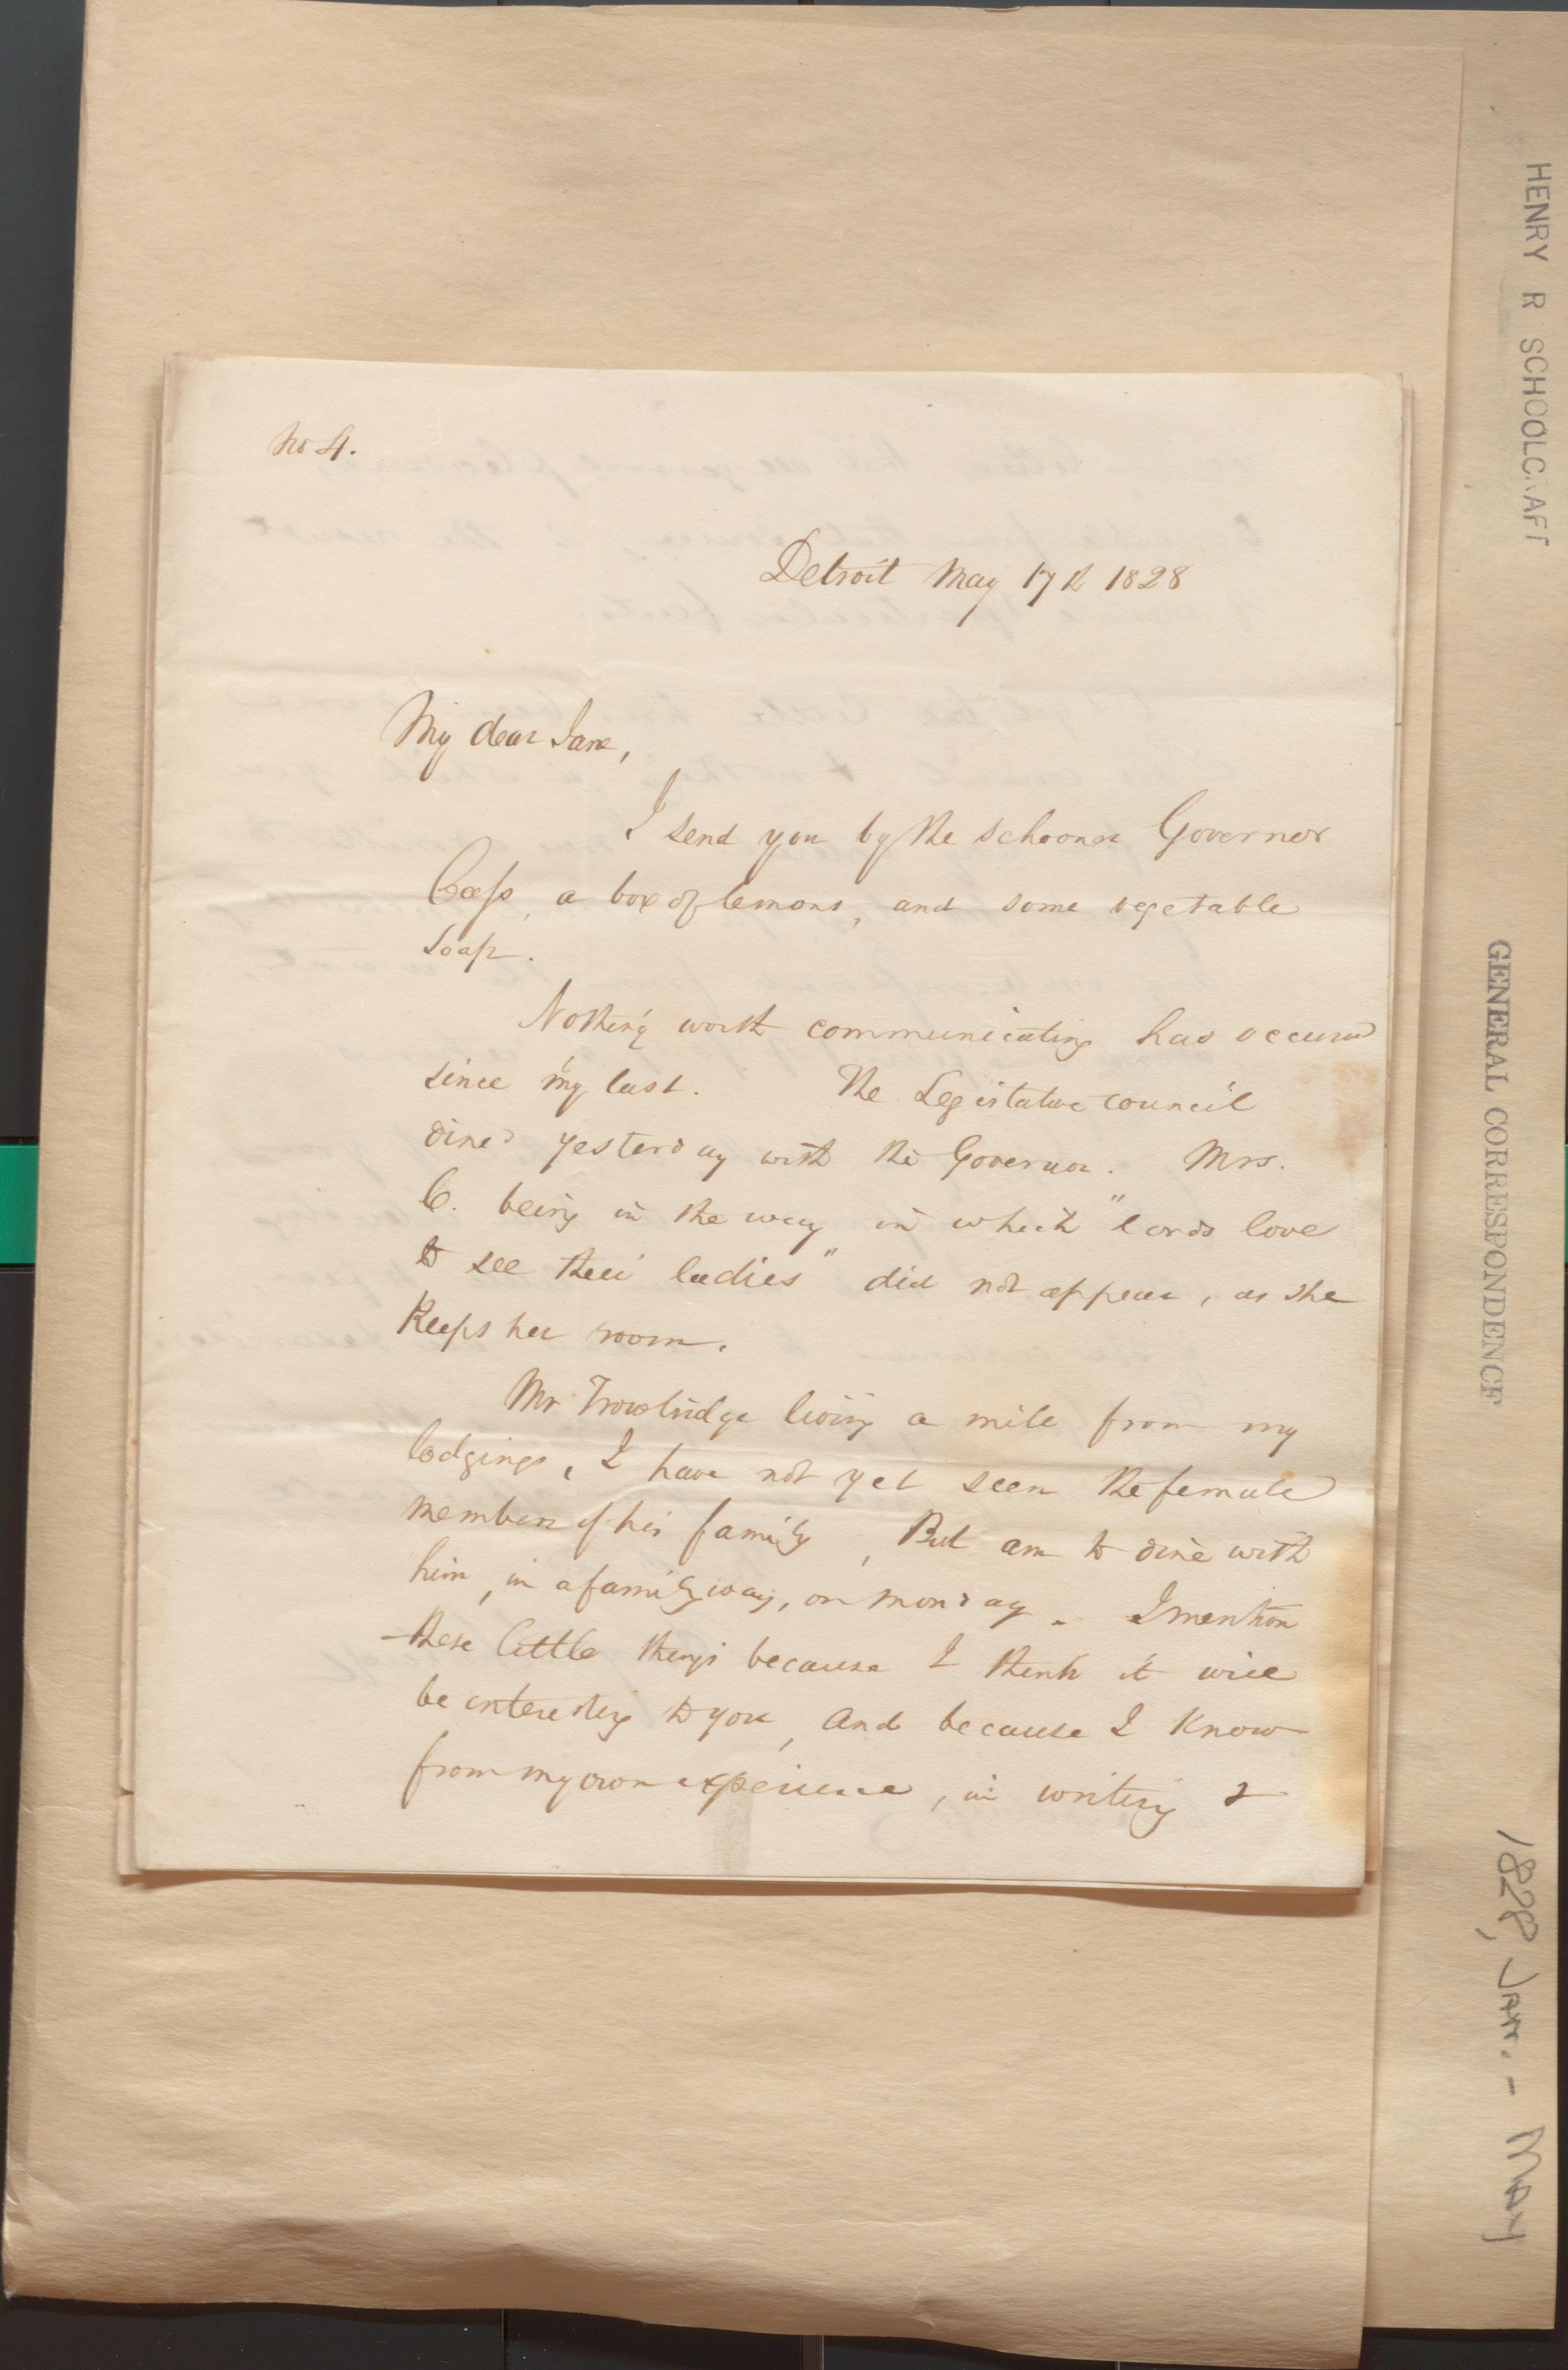 No 4.
Detroit May 17th 1828
My dear Jane,
I send you by the schooner Governor
Cass, a box of lemons, and some vegetable
soap.
Nothing worth communicating has occurred
since my last. The Legislative council
dined yesterday with the Governor. Mrs.
C. being in the way in which "lords love
to see their ladies" did not appear, as she
keeps her room.
Mr Trowbridge living a mile from my
lodgings, I have not yet seen the female
members of his family, But am to dine with
him, in a family way, on monday. I mention
these little things because I think it will
be interesting to you, and because I know
from my own experience, in writing &
HENRY R SCHOOLCRAFT
GENERAL CORRESPONDENCE
1828, JAN. - MAY